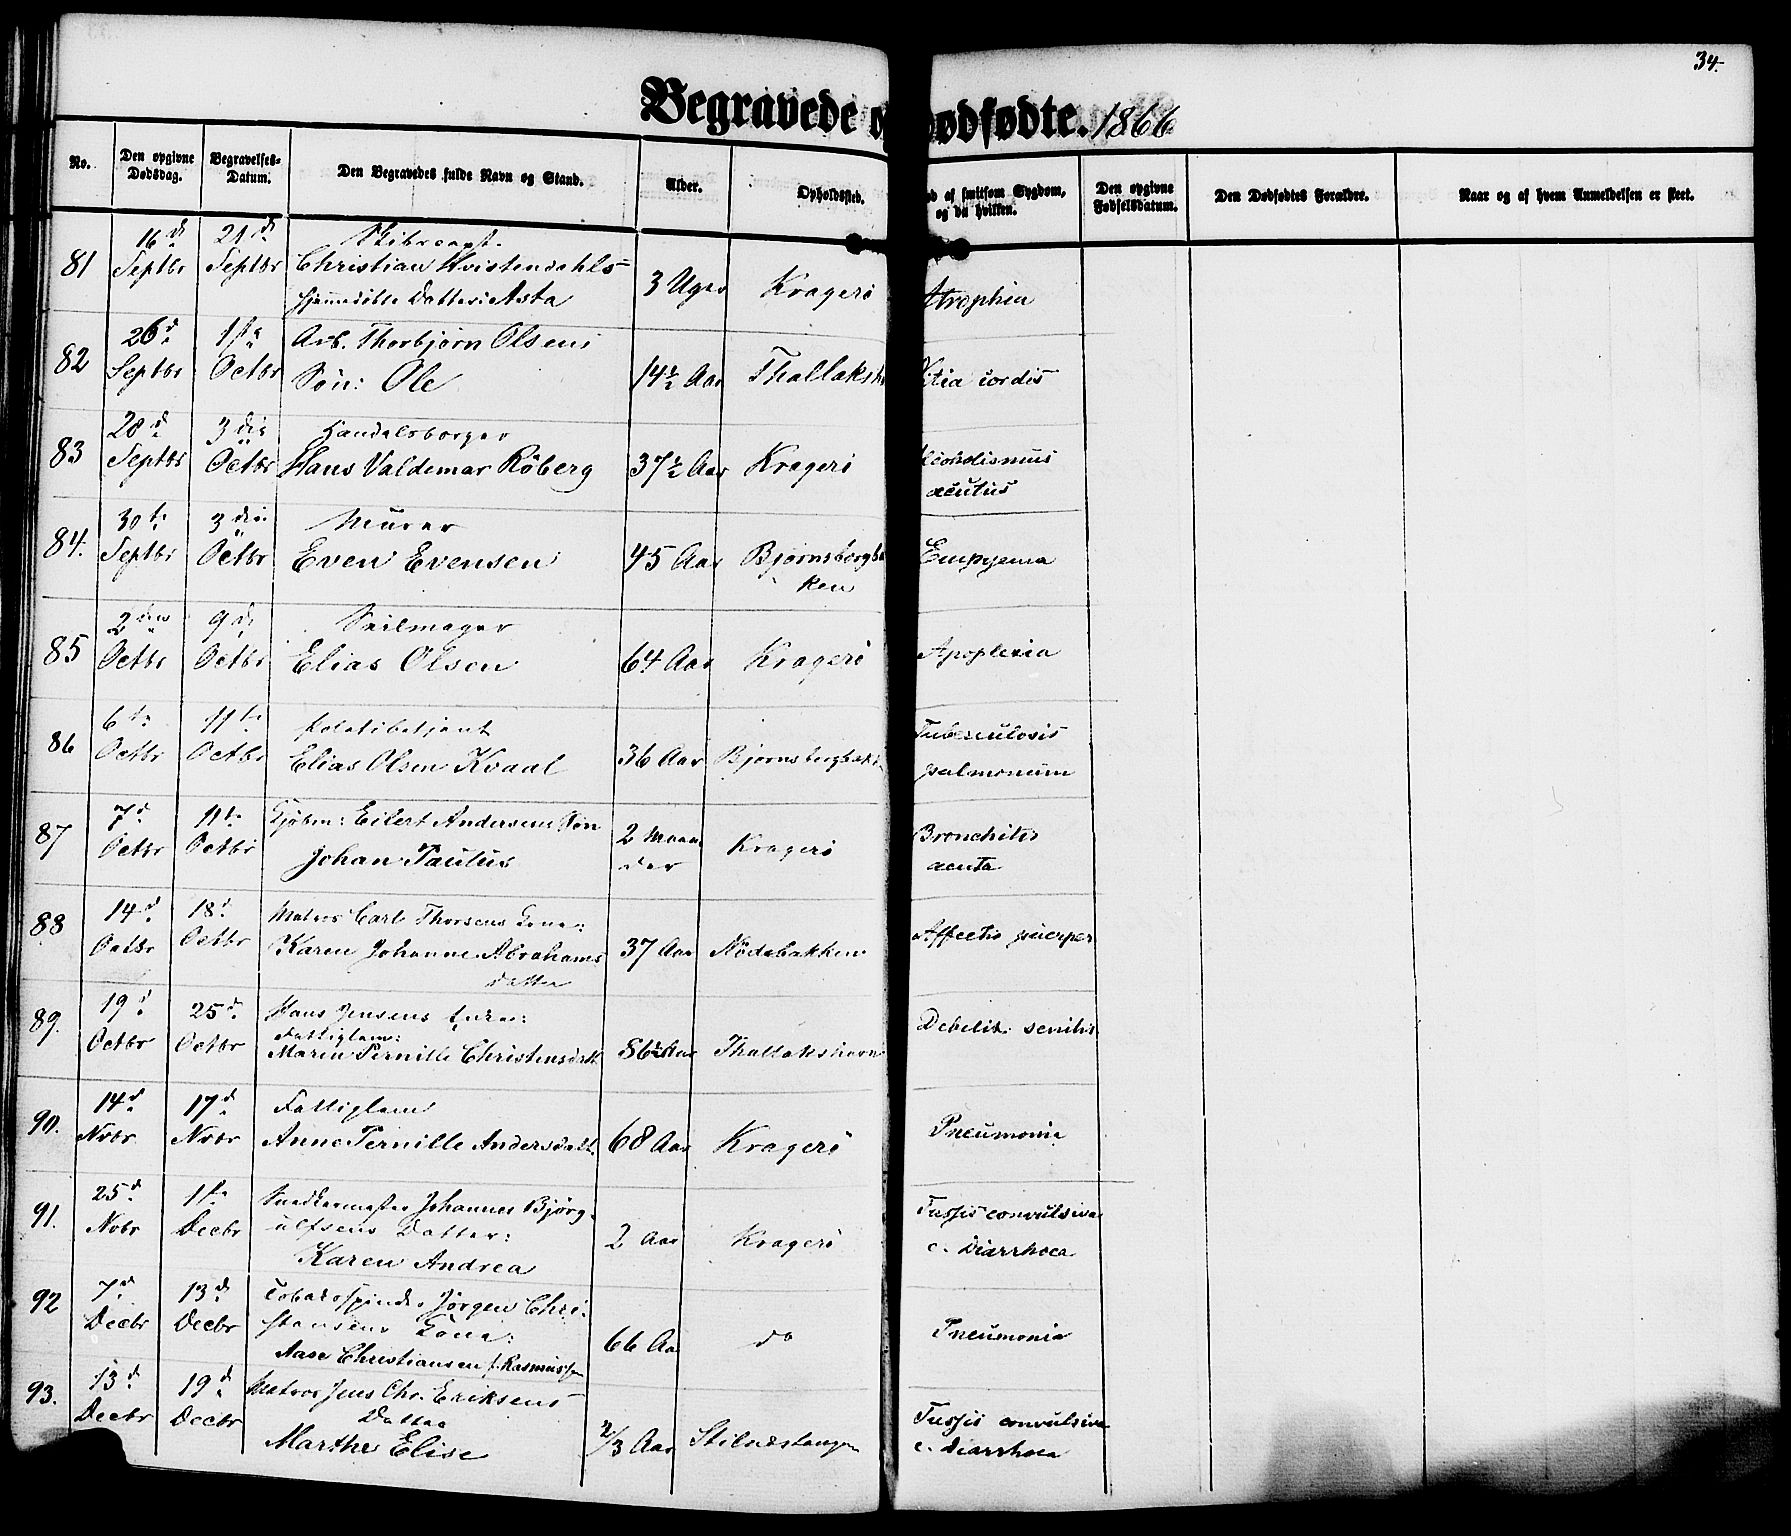 34.
Begravede o ødfødte. 1866
No.
Den opgivne Dødsdag.
Begravelses-Datum.
Den Begravedes fulde Navn og Stand.
Alder.
Opholdssted.
d af smitsom Sygdom, og da hvilken.
Den opgivne Fødselsdatum.
Den Dødfødtes Forældre.
Naar og af hvem Anmeldelsen er skeet.
81 16 d Septbr 21 d Septbr Skibscapt. Christian Hvistendahls hjemmedøbte Datter: Asta 3 Uger Kragerö Atrophia
82 26 d Septbr 1ste Octbr Arb. Thorbjørn Olsens Sön: Ole 14½ Aar Thallaksh Vitia cordis
83 28 d Septbr 3 die Octbr Handelsborger Hans Valdemar Röberg 37½ Aar Kragerö acutus
84. 30 te Septbr 3 die Octbr Murer Even Evensen 45 Aar Bjørnsbergba ken Empyema
85 2 den Octbr 9 d Octbr Seilmager Elias Olsen 64 Aar Kragerö Apoplexia
86 6 te Octbr 11 te Octbr Politibetjent Elias Olsen Kvaal 36 Aar Bjørnsbergbakk Tuberculosis pulmonum
87 7 d Octbr 11 te Octbr Kjöbm: Eilert Andersens Sön Johan Paulus 2 Maaneder Kragerö Bronchitis acuta
88 14 d Octbr 18 d Octbr Matros Carl Thorsens Kone: Karen Johanne Abrahams datter 37 Aar Nödebakken Affectio puerper
89. 19 d Octbr 25 d Octbr Hans Jensens Enke: Fattiglem: Maren Pernille Christensdatt 86½ Aar Thallakshavn Debilit. senilis
90. 14 d Nvbr 17 d Nvbr Fattiglem Anne Pernille Andersdatt. 68 Aar Kragerö Pneumonia
91. 25 d Nvbr 1ste Decbr Snedkermester Johannes Björg- ulfsens Datter: Karen Andrea 2 Aar Kragerö Tussis convulsiva c. Diarrhoea
92 7 d Decbr 13 d Decbr Tobaksspinder Jörgen Chri- stensens Kone: Aase Christiansen f. Rasmussen 66 Aa do Pneumonia
93. 13 d Decbr 19 d Decbr Matros Jens Chr. Eriksens Datter Marthe Elise 2/3 Aar Stilnestangen Tussis convulsiva c. Diarrhoea